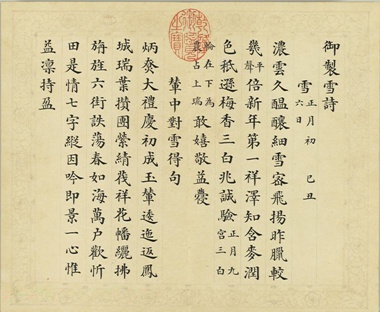 御製雪詩
雪 正月初六日 己丑
濃雲久醖釀細雪密飛揚昨臘較
幾平聲倍新年第一祥澤知含麥潤
色秪遜梅香三白兆誠驗正月九宮三白
在下為農占上瑞敢嬉敬益蘉
輦中對雪得句
炳燹大禮慶初成玉輦逶迤返鳳
城瑞葉攢團縈綪筏祥花幡纚拂
旃旌六街詄蕩春如海萬户歡忻
田是情七字縱因吟即景一心惟
益凜持盈